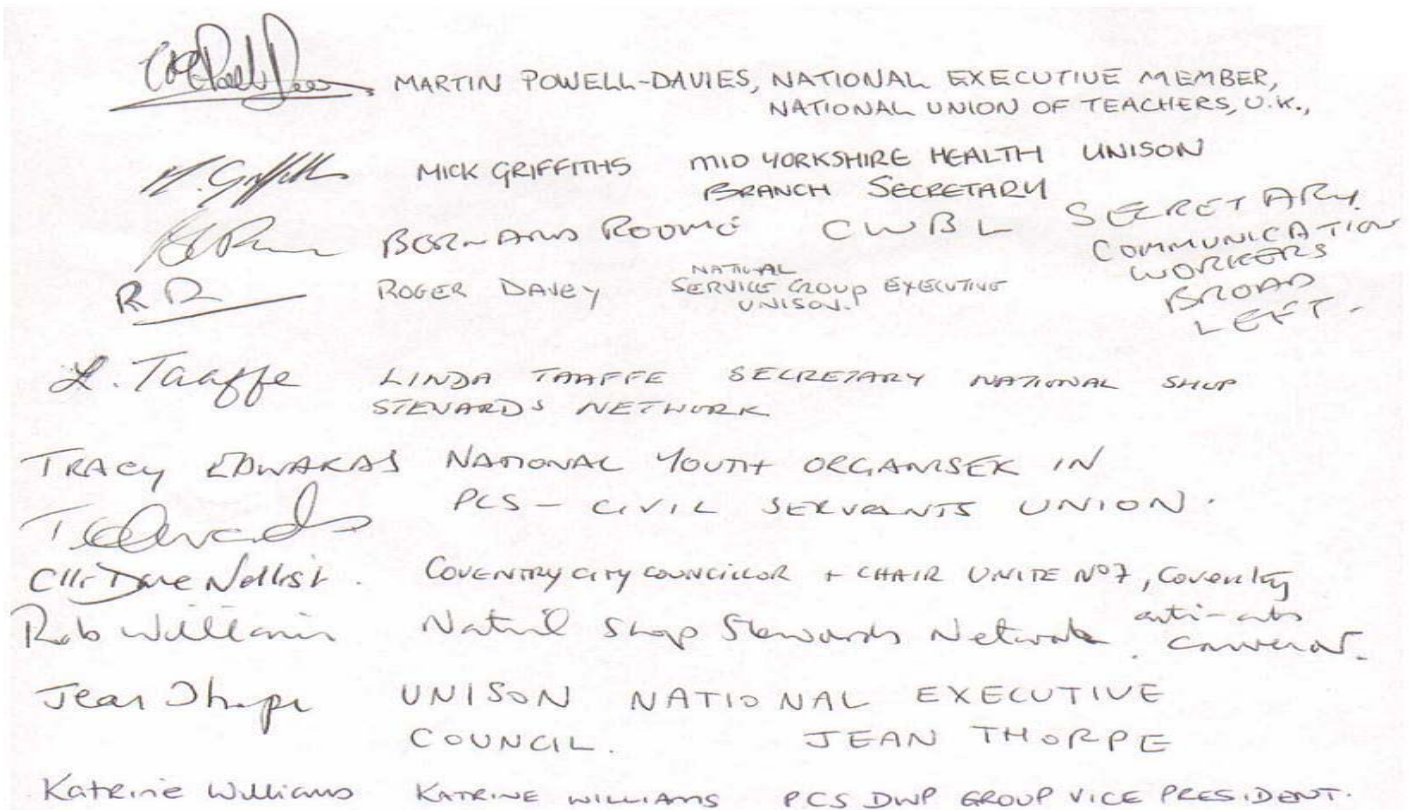 MARTIN POWELL-DAVIES, NATIONAL EXECUTIVE MEMBER,
NATIONAL UNION OF TEACHERS, U.K.,
M. Griffiths MICK GRIFFITHS MID YORKSHIRE HEALTH UNISON
BRANCH SECRETARY
BERNARD ROOME CWBL SECRETARY
COMMUNICATION
WORKERS
BROAD
LEFT.
RD ROGER DAVEY NATIONAL
SERVICE GROUP EXECUTIVE
UNISON.
L. Taaffe LINDA TAAFFE SECRETARY NATIONAL SHOP
STEWARDS NETWORK
TRACY EDWARDS NATIONAL YOUTH ORGANISER IN
PCS - CIVIL SERVANTS UNION.
TEdwards
Cllr Dave Nellist. COVENTRY CITY COUNCILLOR + CHAIR UNITE No7, Coventry
Rob Williams National Shop Stewards Network anti-cuts
convenor.
Jean Thorpe UNISON NATIONAL EXECUTIVE
COUNCIL. JEAN THORPE
Katrine Williams KATRINE WILLIAMS PCS DWP GROUP VICE PRESIDENT.